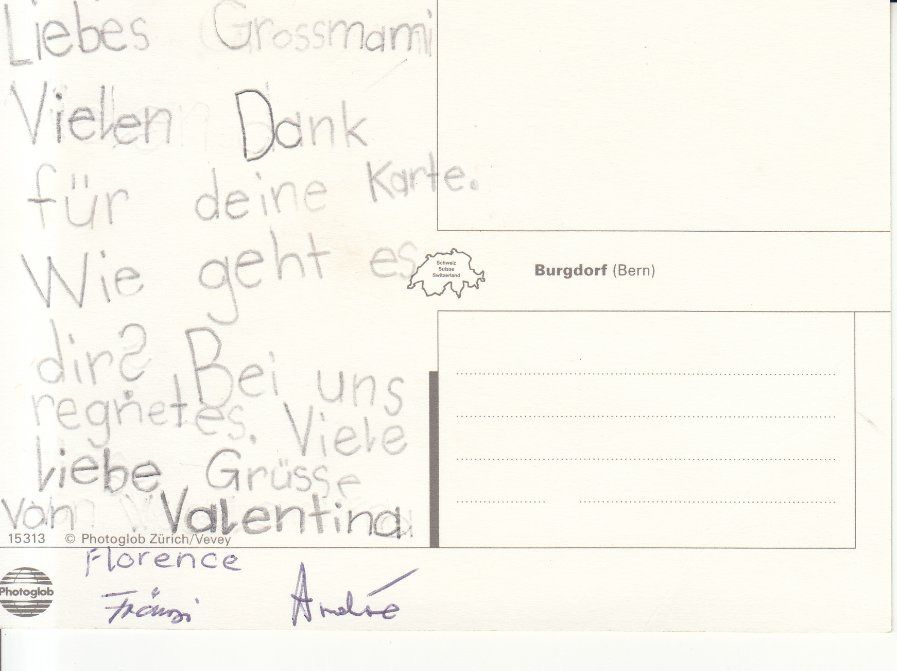 Liebes Grossmami
Vielen Dank
für deine Karte.
Wie geht es
dir? Bei uns
regnet es. Viele
liebe Grüsse
von Valentina
Florence
Fränzi André
Schweiz
Suisse
Switzerland
Burgdorf (Bern)
15313 © Photoglob Zürich/Vevey
Photoglob